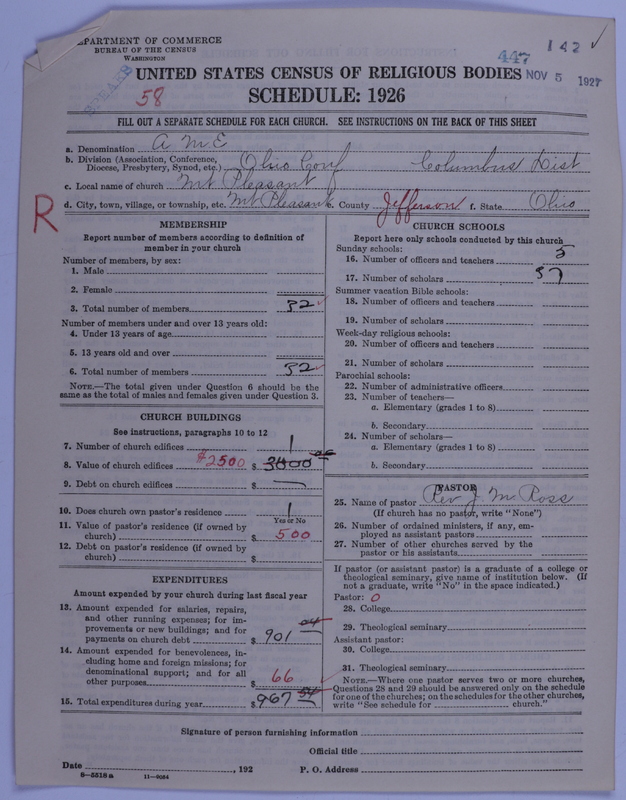 DEPARTMENT OF COMMERCE
BUREAU OF THE CENSUS
WASHINGTON
447
142 ✓
UNITED STATES CENSUS OF RELIGIOUS BODIES
NOV 5 1927
58
SCHEDULE: 1926
FILL OUT A SEPARATE SCHEDULE FOR EACH CHURCH. SEE INSTRUCTIONS ON THE BACK OF THIS SHEET
a. Denomination A M E
b. Division (Association, Conference, Diocese, Presbytery, Synod, etc.) Ohio Conf Columbus Dist
c. Local name of church Mt Pleasant
d. City, town, village, or township, etc. Mt Pleasant e. County Jefferson f. State Ohio
R
MEMBERSHIP
Report number of members according to definition of
member in your church
Number of members, by sex:
1. Male
2. Female
3. Total number of members 32 ✓
Number of members under and over 13 years old:
4. Under 13 years of age
5. 13 years old and over
6. Total number of members 32 ✓
NOTE.—The total given under Question 6 should be the
same as the total of males and females given under Question 3.
CHURCH BUILDINGS
See instructions, paragraphs 10 to 12
7. Number of church edifices 1
8. Value of church edifices $2500 $ 3400
9. Debt on church edifices $
10. Does church own pastor's residence 1
Yes or No
11. Value of pastor's residence (if owned by
church) $ 500
12. Debt on pastor's residence (if owned by
church) $
EXPENDITURES
Amount expended by your church during last fiscal year
13. Amount expended for salaries, repairs,
and other running expenses; for im-
provements or new buildings; and for
payments on church debt $ 901
14. Amount expended for benevolences, in-
cluding home and foreign missions; for
denominational support; and for all
other purposes $ 66
15. Total expenditures during year $ 967
CHURCH SCHOOLS
Report here only schools conducted by this church
Sunday schools:
16. Number of officers and teachers 5
17. Number of scholars 37
Summer vacation Bible schools:
18. Number of officers and teachers
19. Number of scholars
Week-day religious schools:
20. Number of officers and teachers
21. Number of scholars
Parochial schools:
22. Number of administrative officers
23. Number of teachers—
a. Elementary (grades 1 to 8)
b. Secondary
24. Number of scholars—
a. Elementary (grades 1 to 8)
b. Secondary
PASTOR
25. Name of pastor Rev J. M. Ross
(If church has no pastor, write "None")
26. Number of ordained ministers, if any, em-
ployed as assistant pastors
27. Number of other churches served by the
pastor or his assistants
If pastor (or assistant pastor) is a graduate of a college or
theological seminary, give name of institution below. (If
not a graduate, write "No" in the space indicated.)
Pastor: 0
28. College
29. Theological seminary
Assistant pastor:
30. College
31. Theological seminary
NOTE.—Where one pastor serves two or more churches,
Questions 28 and 29 should be answered only on the schedule
for one of the churches; on the schedules for the other churches,
write "See schedule for church."
Signature of person furnishing information
Official title
Date , 192 P. O. Address
8—5518 a 11—9064